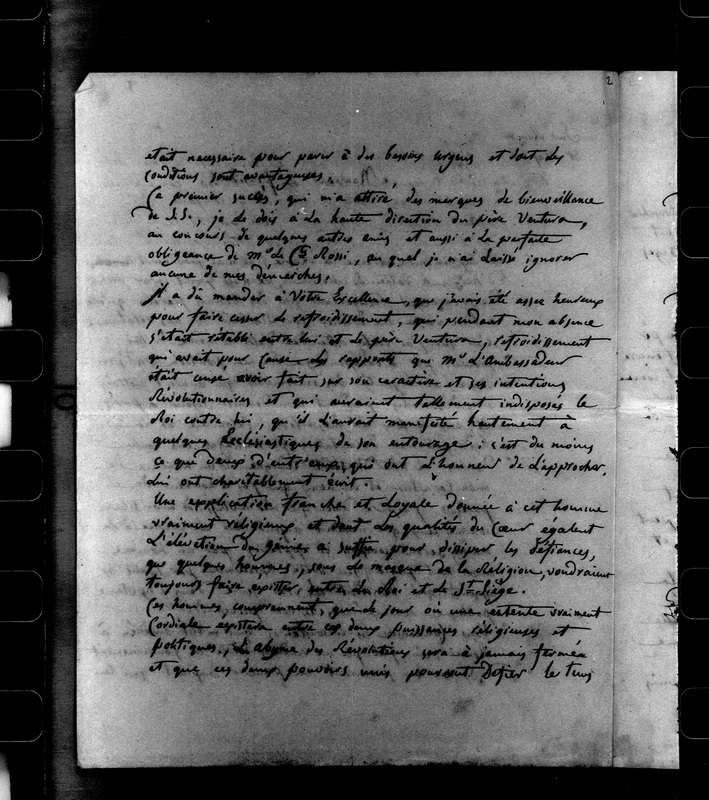 2
etait necessaire pour parer à des besoins urgens et dont les
Conditions sont avantageuses.
Ce premier succès, qui m'a attiré des marques de bienveillance
de S.S., je le dois à la haute direction du père Ventura,
au concours de quelques autres amis et aussi à la parfaite
obligeance de Mr le Cte Rossi, au quel je n'ai laissé ignorer
aucune de mes démarches.
Il a dû mander à Votre Excellence, que j'avais été assez heureux
pour faire cesser le refroidissement, qui pendant mon absence
s'etait rétabli entre lui et le père Ventura, refroidissement
qui avait pour Cause des rapports que Mr L'Ambassadeur
était censé avoir fait sur son caractère et ses intentions
Révolutionnaires et qui auraient tellement indisposés le
Roi contre lui, qu'il l'aurait manifesté hautement à
quelques Ecclésiastiques de son entourage ; c'est du moins
ce que deux d'entr'eux, qui ont l'honneur de l'approcher,
lui ont charitablement écrit.
Une explication franche et Loyale donnée à cet homme
vraiment réligieux et dont les qualités du Cœur égalent
L'élévation du génie a suffit pour dissiper les défiances,
que quelques hommes, sous le masque de la Réligion, voudraient
toujours faire exister entre le Roi et le St Siège.
Ces hommes comprennent, que le jour où une entente vraiment
Cordiale existera entre ces deux puissances réligieuses et
politiques, L'abyme des Révolutions sera à jamais fermée
et que ces deux pouvoirs unis pourront Défier le tems